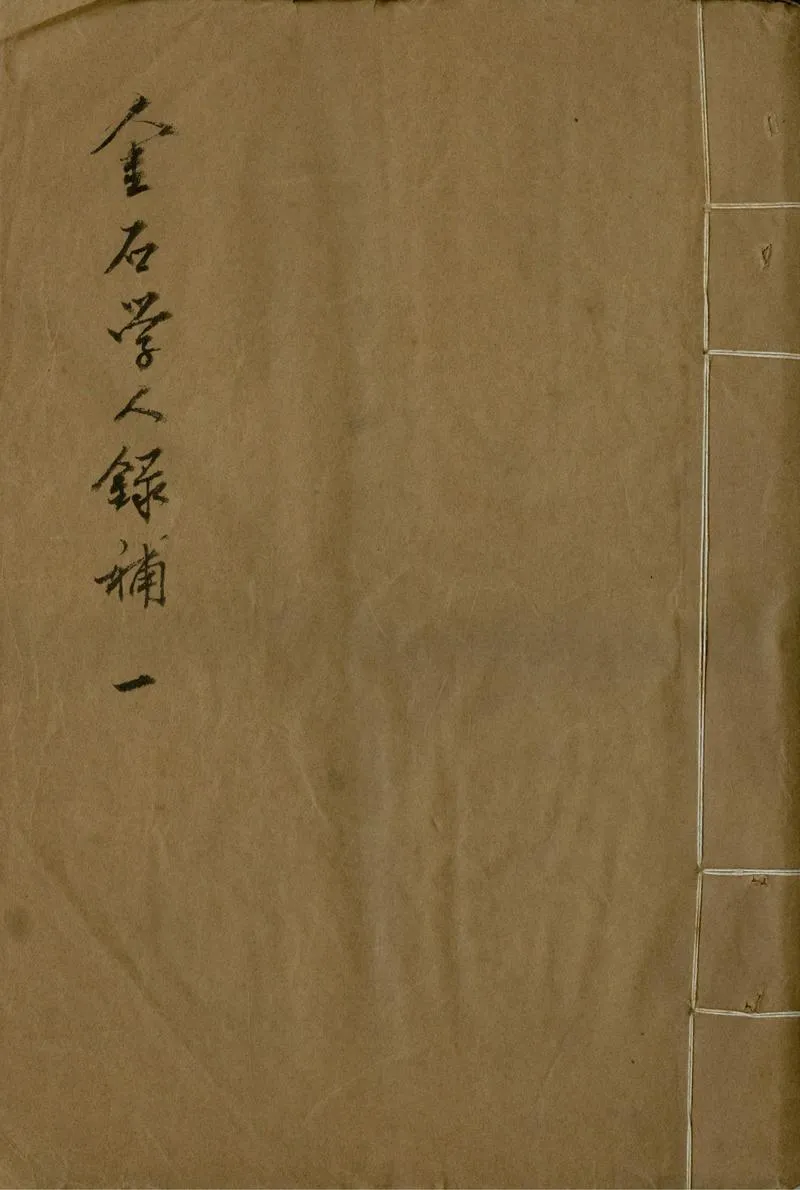 金石学人録補 一